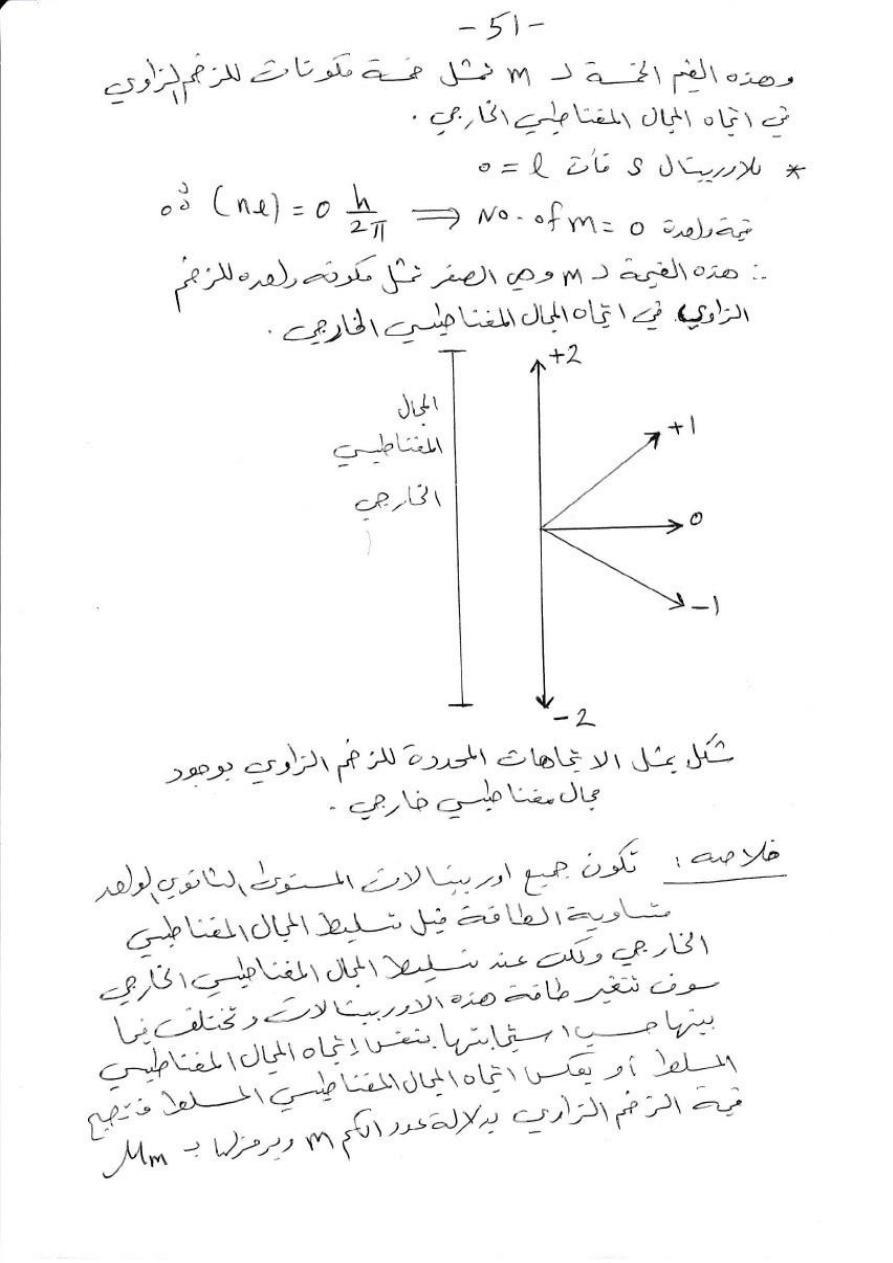 -51-
وهذه القيم الخمسة لـ m تمثل خمسة مكونات للزخم الزاوي
في اتجاه المجال المغناطيسي الخارجي .
* للاوربيتال s فأن l = 0
∴ (nl) = 0 h/2π ⟹ No. of m = 0 قيمة واحدة
∴ هذه القيمة لـ m وهي الصفر تمثل مكونه واحده للزخم
الزاوي في اتجاه المجال المغناطيسي الخارجي .
+2
المجال
المغناطيسي
الخارجي
+1
0
-1
-2
شكل يمثل الاتجاهات المحددة للزخم الزاوي بوجود
مجال مغناطيسي خارجي .
خلاصه : تكون جميع اوربيتالات المستوى الثانوي الواحد
متساوية الطاقة قبل تسليط المجال المغناطيسي
الخارجي ولكن عند تسليط المجال المغناطيسي الخارجي
سوف تتغير طاقة هذه الاوربيتالات وتختلف فيما
بينها حسب استجابتها بنفس إتجاه المجال المغناطيسي
المسلط أو بعكس اتجاه المجال المغناطيسي المسلط فتصبح
قيمة الزخم الزاوي بدلالة عدد الكم m ويرمز لها بـ Mm